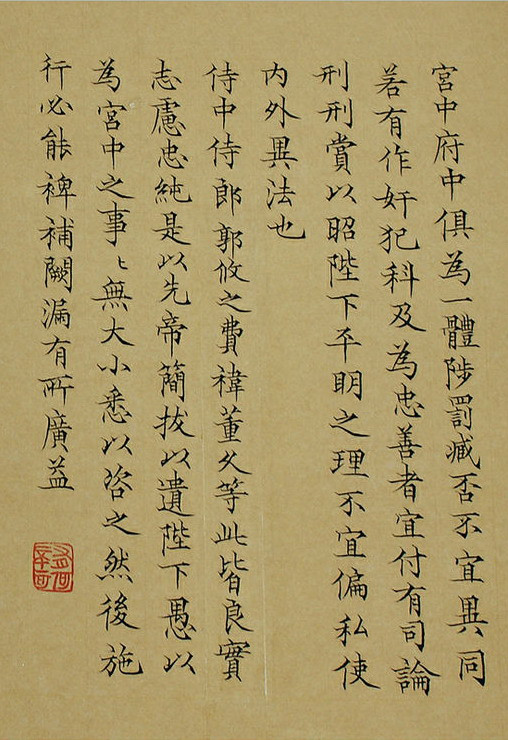 宮中府中俱為一體陟罰臧否不宜異同
若有作奸犯科及為忠善者宜付有司論
刑刑賞以昭陛下平明之理不宜偏私使
內外異法也
侍中侍郎郭攸之費禕董允等此皆良實
志慮忠純是以先帝簡拔以遺陛下愚以
為宮中之事〻無大小悉以咨之然後施
行必能裨補闕漏有所廣益